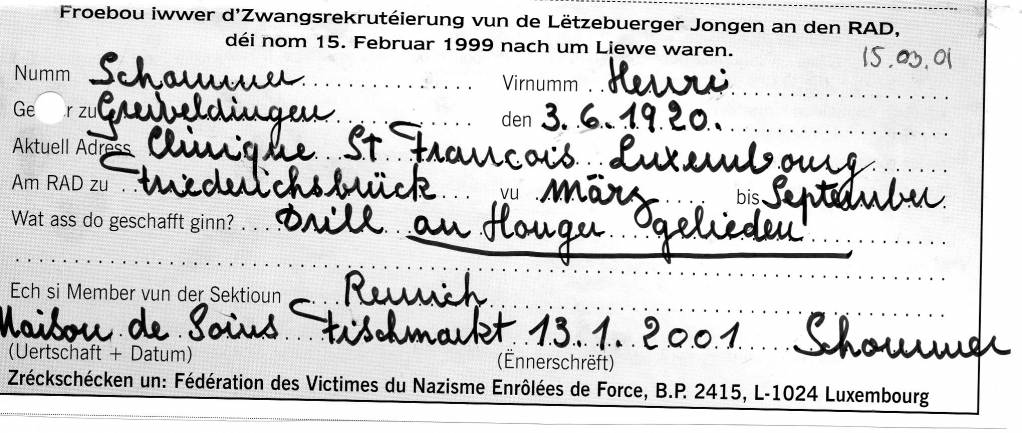 Froebou iwwer d'Zwangsrekrutéierung vun de Lëtzebuerger Jongen an den RAD,
déi nom 15. Februar 1999 nach um Liewe waren.
15.03.01
Numm Schommer Virnumm Henri
Ge r zu Greiveldingen den 3.6.1920.
Aktuell Adress Clinique St François Luxembourg
Am RAD zu Friederichsbrück vu März bis September
Wat ass do geschafft ginn? Drill an Honger gelieden
Ech si Member vun der Sektioun Remich
Maison de Soins Fischmarkt 13.1.2001 Schommer
(Uertschaft + Datum) (Ënnerschrëft)
Zréckschécken un: Fédération des Victimes du Nazisme Enrôlées de Force, B.P. 2415, L-1024 Luxembourg